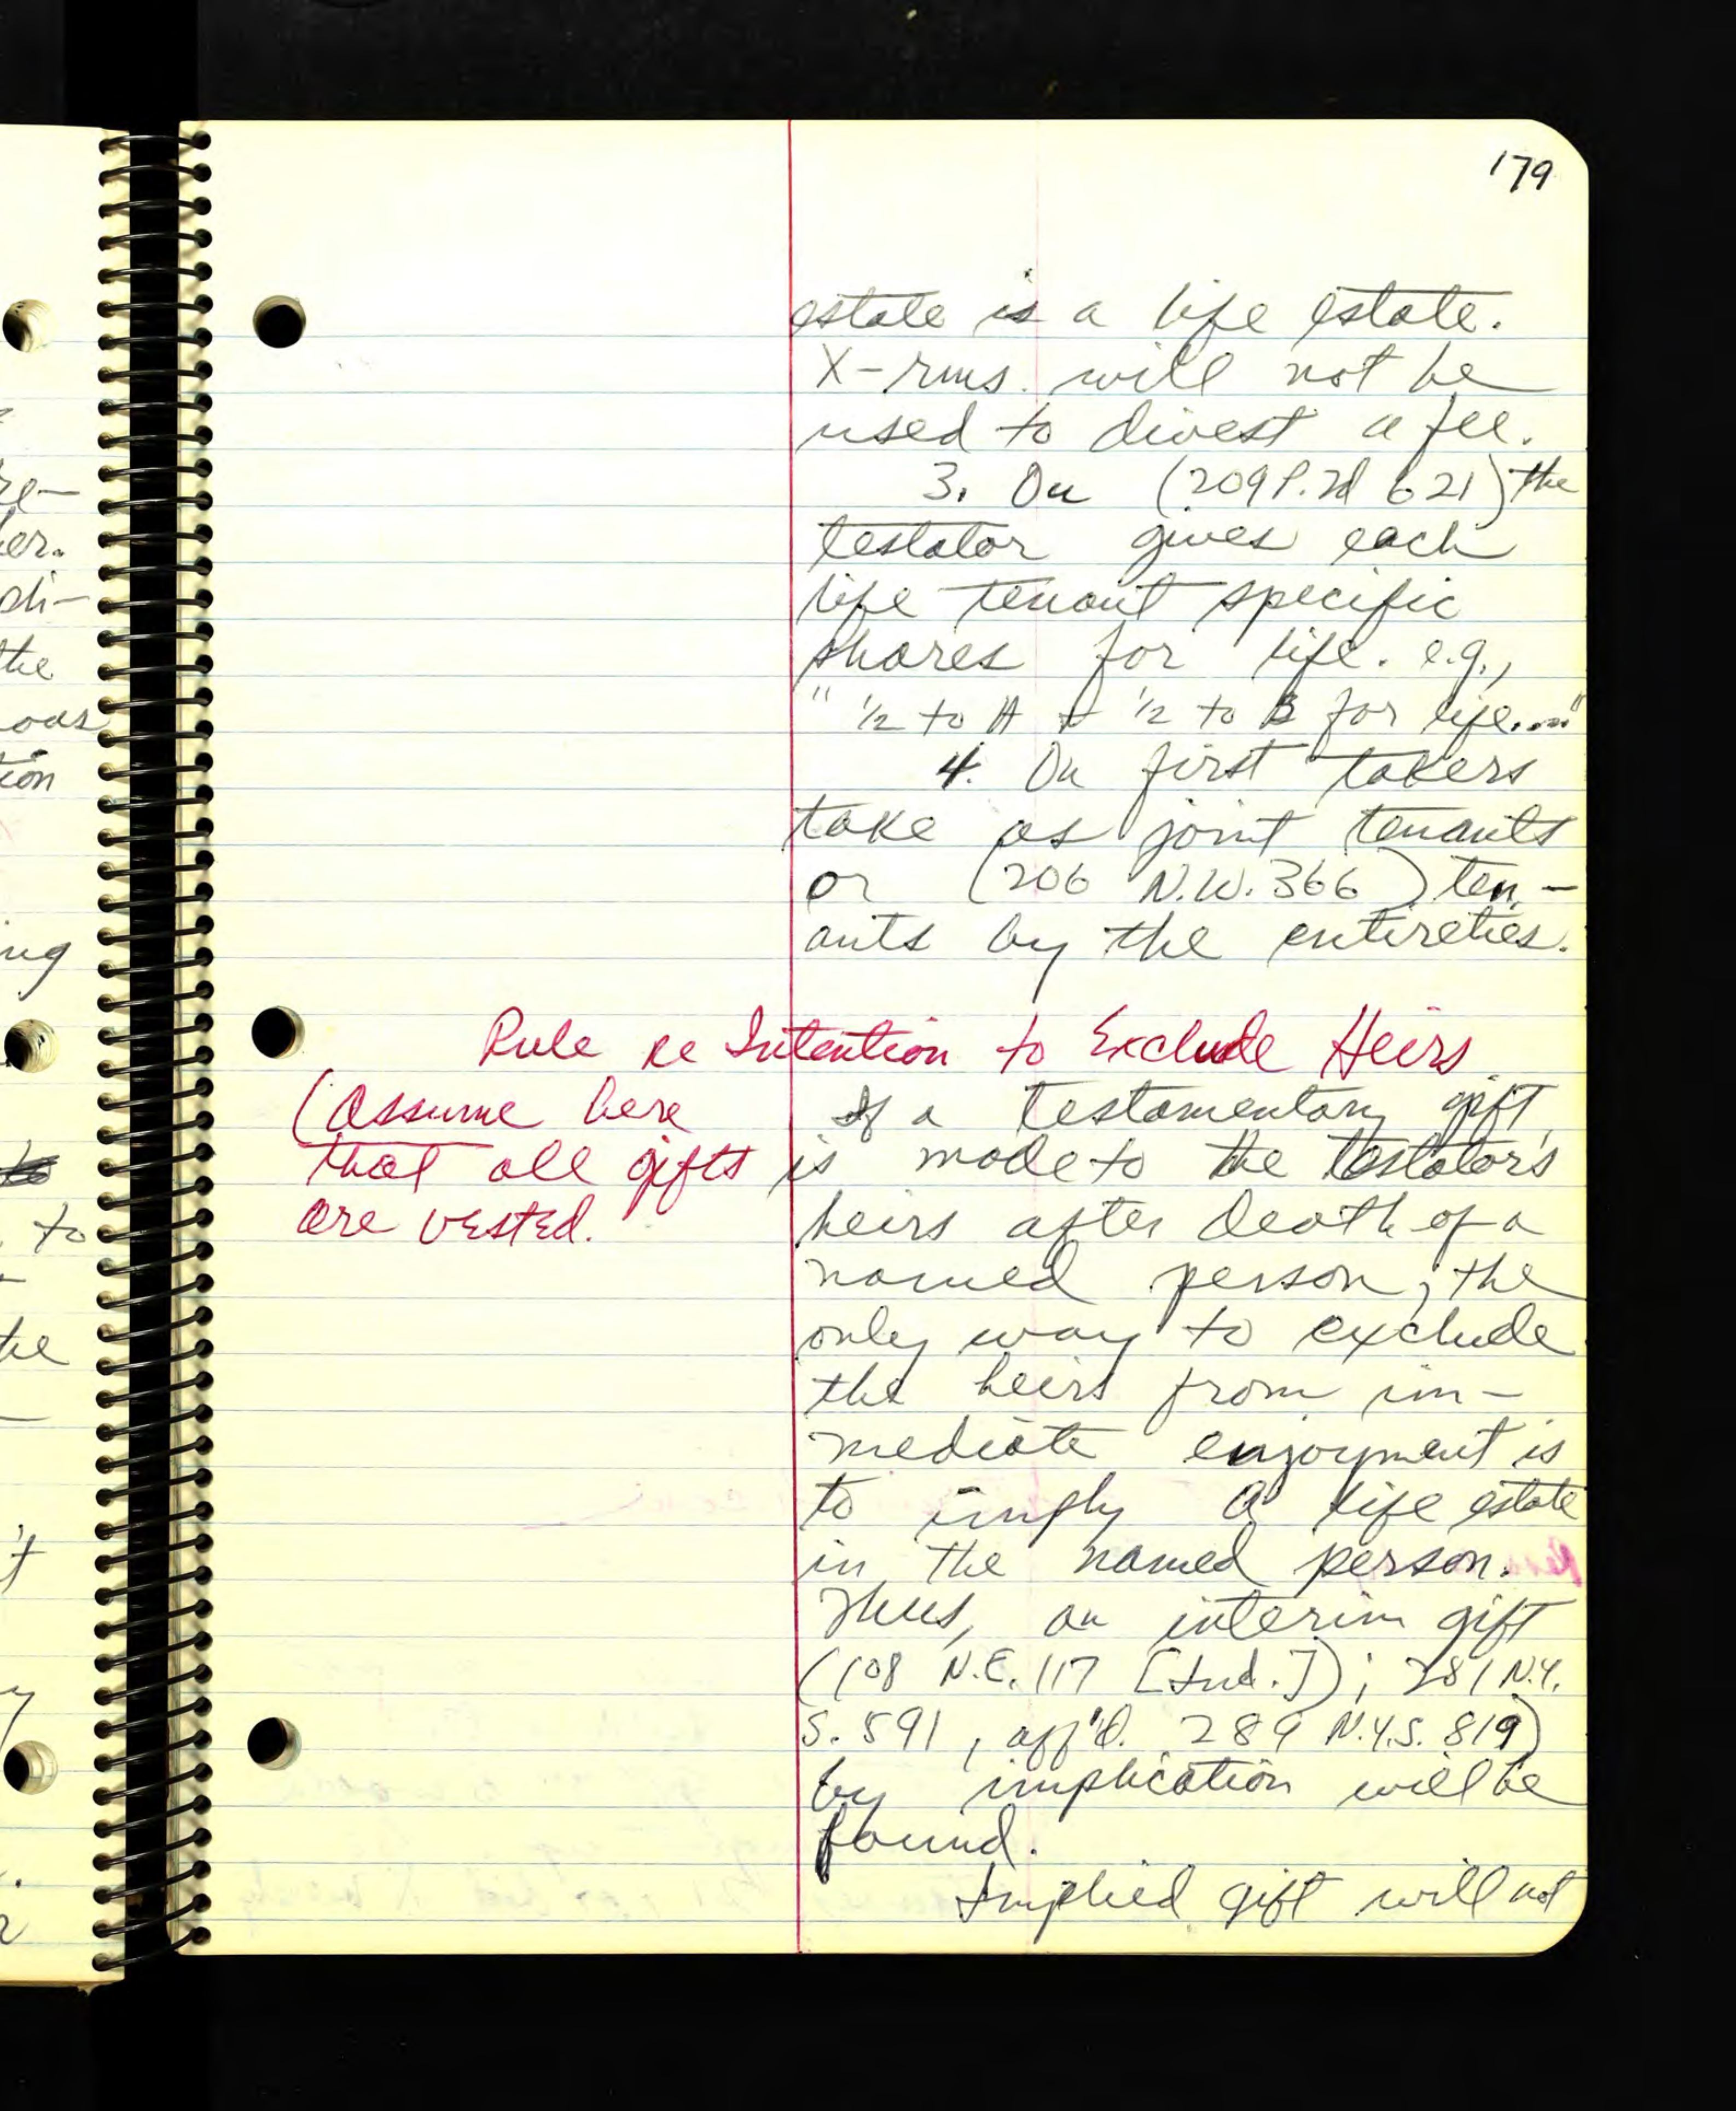 179
estate is a life estate.
X-rms. will not be
used to divest a fee.
3. Or (209 P.2d 621) the
testator gives each
life tenant specific
shares for life. e.g.,
" 1/2 to A & 1/2 to B for life...."
4. Or first takers
take as joint tenants
or (206 N.W. 366) ten-
ants by the entireties.
Rule re Intention to Exclude Heirs
(Assume here
that all gifts
are vested.
If a testamentary gift
is made to the testator's
heirs after death of a
named person, the
only way to exclude
the heirs from im-
mediate enjoyment is
to imply a life estate
in the named person.
Thus, an interim gift
(108 N.E. 117 [Ind.]); 281 N.Y.
S. 591, aff'd. 289 N.Y.S. 819)
by implication will be
found.
Implied gift will not